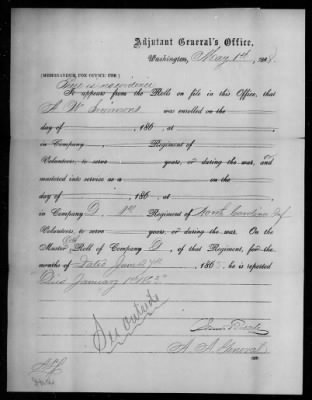 Adjutant General's Office,
Washington, May 1st, 186
[MEMORANDUM FOR OFFICE USE.]
There is no evidence
It appears from the Roll on file in this Office, that
A W was enrolled on the
day of , 186 , at
in Company , Regiment of
Volunteers, to serve years, or during the war, and
mustered into service as a on the
day of , 186 , at ,
in Company D, Regiment of North Carolina Inf
Volunteers, to serve years, or during the war. On the
Muster Roll of Company D, of this Regiment, for the
months of Dated June 27th, 1865, he is reported
"Died January
See outside
A. A. General